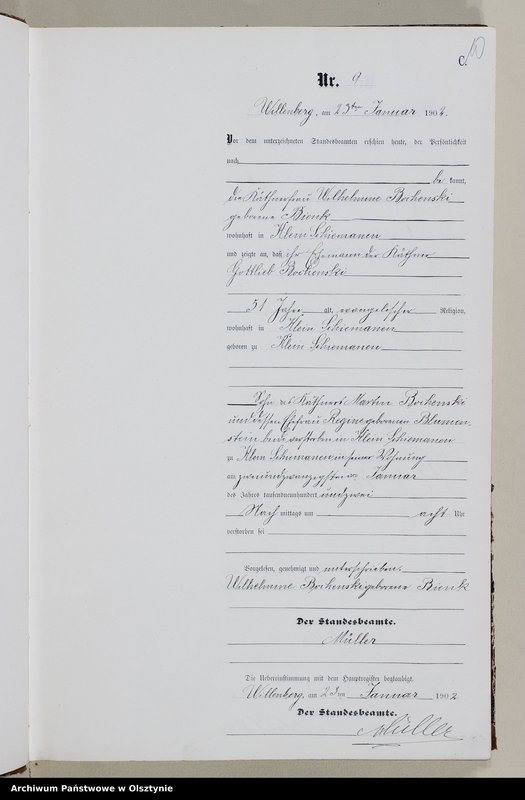 C. 10
Nr. 9
Willenberg, am 23ten Januar 1902.
Vor dem unterzeichneten Standesbeamten erschien heute, der Persönlichkeit
nach
be kannt,
die Käthnerfrau Wilhelmine Bochenski
geborene Bienk
wohnhaft in Klein Schiemanen
und zeigte an, daß ihr Ehemann der Käthner
Gottlieb Bochenski
51 Jahre alt, evangelischer Religion,
wohnhaft in Klein Schiemanen
geboren zu Klein Schiemanen
Sohn des Käthners Martin Bochenski
und dessen Ehefrau Regine geborenen Blumen-
stein beide verstorben in Klein Schiemanen
zu Klein Schiemanen in seiner Wohnung
am zweiundzwanzigsten Januar
des Jahres tausendneunhundert und zwei
Nach mittags um acht Uhr
verstorben sei
Vorgelesen, genehmigt und unterschrieben.
Wilhelmine Bochenski geborene Bienk
Der Standesbeamte.
Müller
Die Uebereinstimmung mit dem Hauptregister beglaubigt.
Willenberg, am 23ten Januar 1902
Der Standesbeamte.
Müller
Archiwum Państwowe w Olsztynie